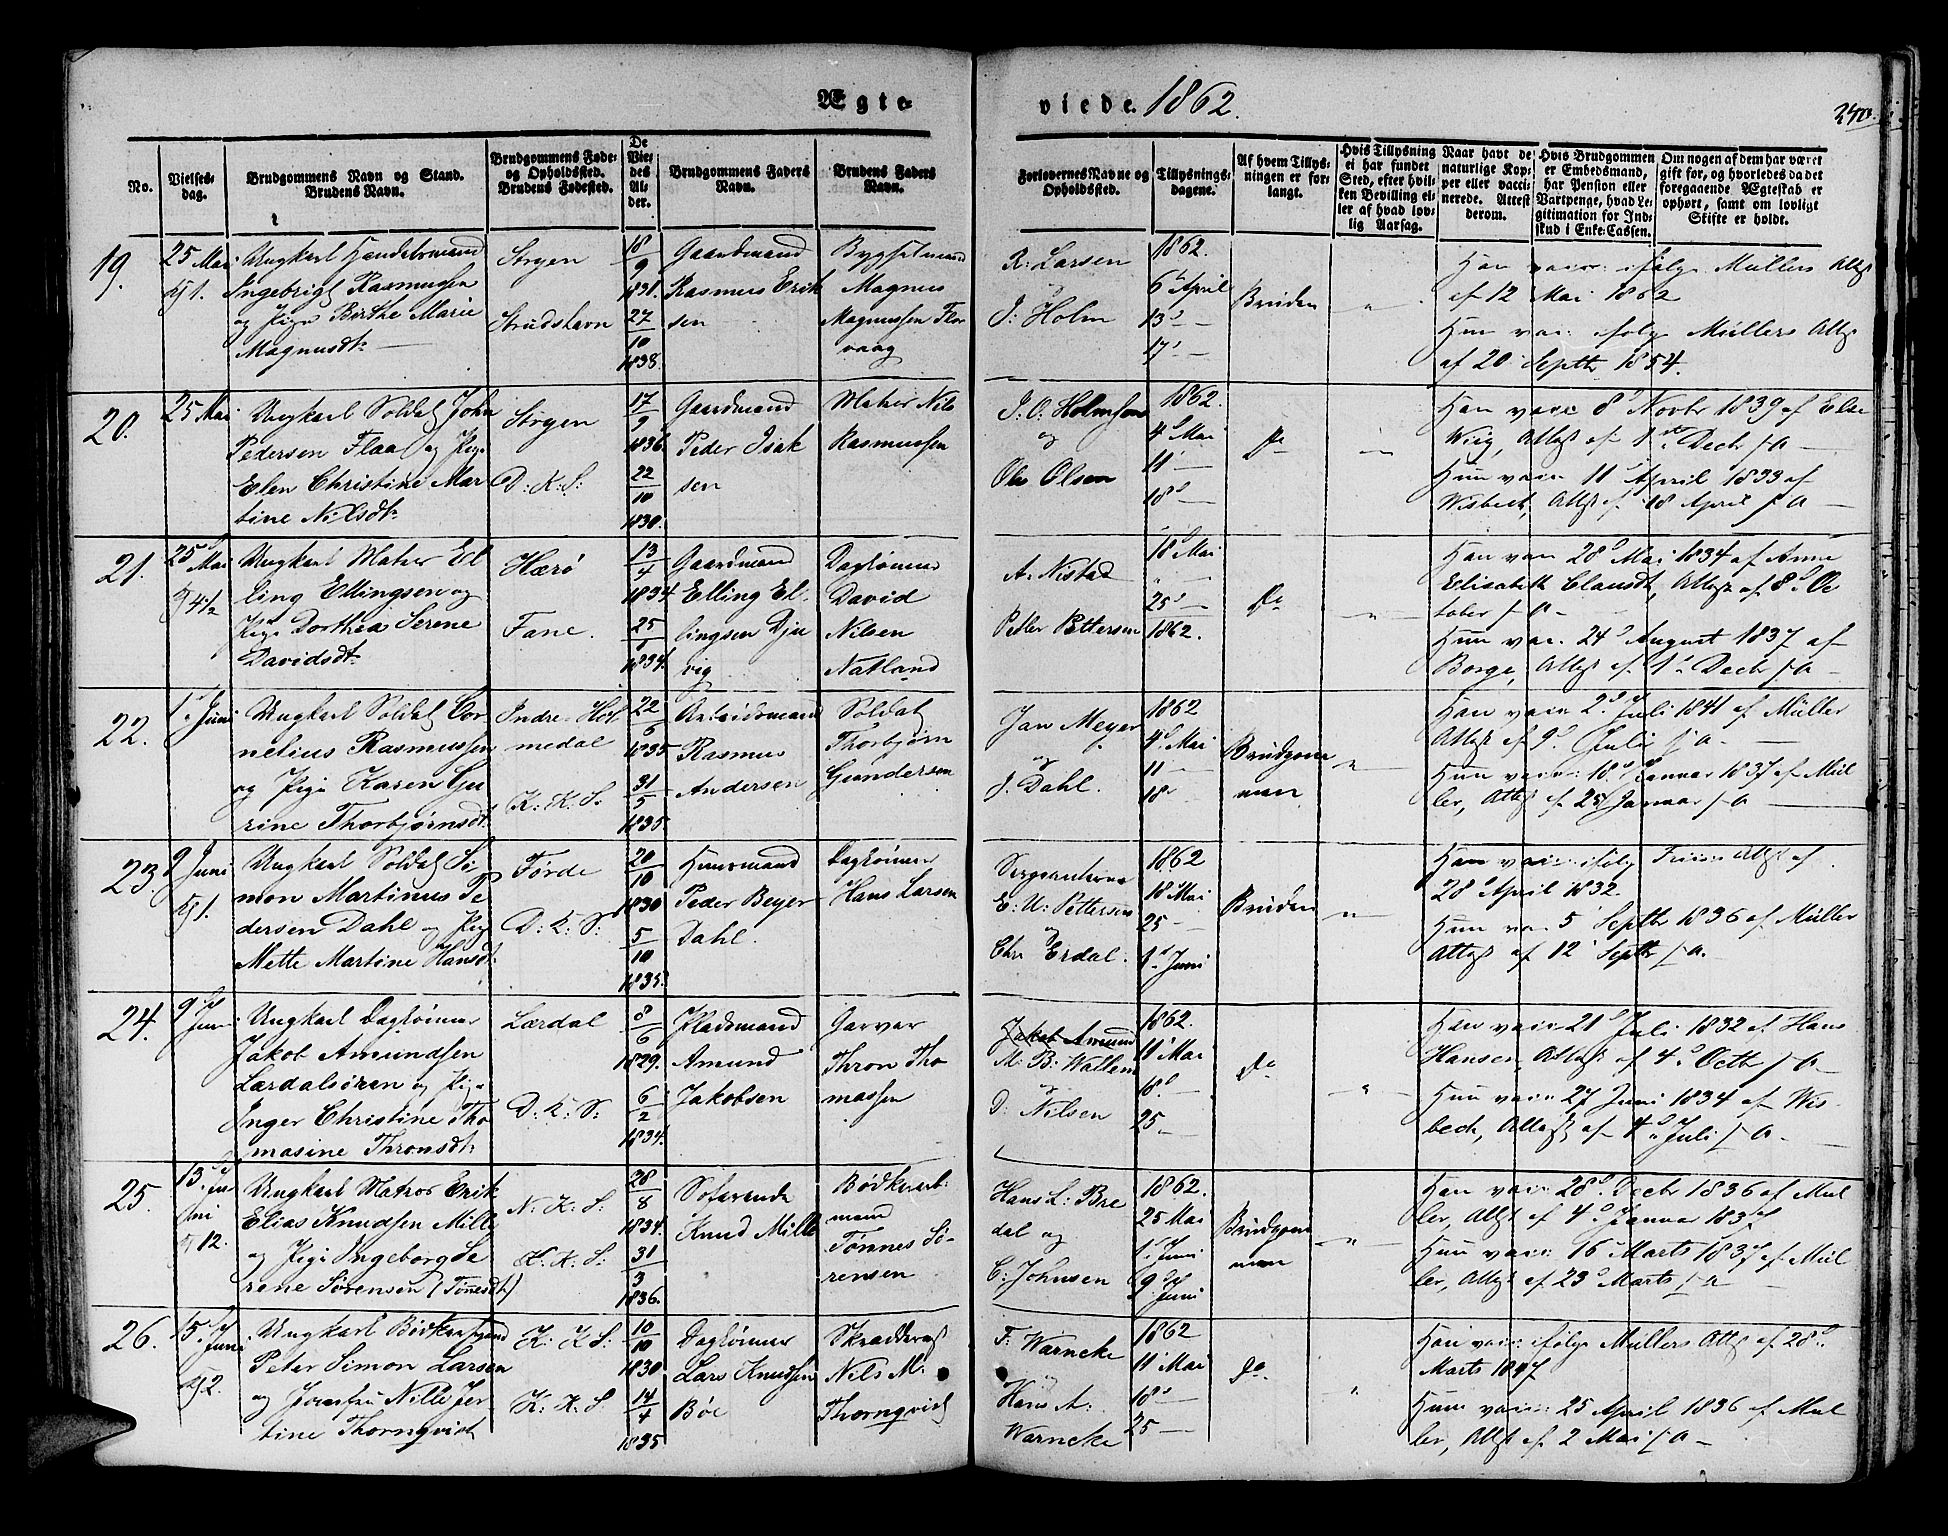 Ægte-
viede 1862.
No.
Vielses-
dag.
Brudgommens Navn og Stand.
Brudens Navn.
Brudgommens Føde-
og Opholdssted.
Brudens Fødested.
De
Vie-
des
Al-
der.
Brudgommens Faders
Navn.
Brudens Faders
Navn.
Forlovernes Navne og
Opholdssted.
Tillysnings-
dagene.
Af hvem Tillys-
ningen er for-
langt.
Hvis Tillysning
ei har fundet
Sted, efter hvil-
ken Bevilling el-
ler af hvad lov-
lig Aarsag.
Naar havt de
naturlige Kop-
per eller vacci-
nerede. Attest
derom.
Hvis Brudgommen
er Embedsmand,
har Pension eller
Vartpenge, hvad Le-
gitimation for Ind-
skud i Enke-Cassen.
Om nogen af dem har været
gift før, og hvorledes da det
foregaaende Ægteskab er
ophørt, samt om lovligt
Skifte er holdt.
19.
25 Mai
Kj 1.
Ungkarl Handelsmand
Ingebrigt Rasmussen
og Pige Birthe Marie
Magnusdt.
Stryen
Strudshavn
18
9
1831.
27
10
1838.
Gaardmand
Rasmus Erik
sen
Bygselmand
Magnus
Magnussen Flor
vaag
R: Larsen
og
J: Holm
1862.
6 April
13 —
17 —
Bruden
"
Han vacc: ifølge Müllers Attst
af 12 Mai 1862
Hun vac: ifølge Müllers Attst
af 20 Septbr 1854.
20.
25 Mai
Ungkarl Soldat John
Pedersen Flaa og Pige
Elen Christine Mar
tine Nilsdt.
Stryen
D: K: S:
17
9
1836
22
10
1830.
Gaardmand
Peder Isak
sen
Matros Nils
Rasmussen
J: O: Holmsen
og
Ole Olsen
1862.
4 Mai
11 —
18 —
Do
"
Han vacc 8 Novbr 1839 af Else
Wiig, Attest af 1ste Decbr s. a —
Hun vacc 11 April 1833 af
Wisbech, Attst af 18 April s. a —
21.
25 Mai
Kj 4½
Ungkarl Matros El
ling Ellingsen og
Pige Dorthea Serene
Davidsdt.
Hærø
Fane.
13
4
1834
25
1
1834.
Gaardmand
Elling El-
lingsen Dju
vig
Dagløinner
David
Nilsen
Natland
A: Nistad
Peder Pettersen
18 Mai
"
25 —
1862.
Do
"
Han vacc 28 Mai 1834 af Anne
Elisabeth Clausdt, Attst af 8 Oc
tober s. a —
Hun vacc. 24 August 1837 af
Borge, Attst af 1 Decbr s. a —
22.
1. Juni
Ungkarl Soldat Cor
nelius Rasmussen
og Pige Karen Gu
rine Thorbjørnsdt.
Indre Hol
medal
K: K: S:
22
6
1835
31
5
1835.
Arbeidsmand
Rasmus
Andersen
Soldat
Thorbjørn
Gundersen
Jan Meyer
og
J. Dahl.
1862
4 Mai
11 —
18 —
Brudgom
men
"
Han vacc 2 Juli 1841 af Müller
Attst af 9 Juli s. a —
Hun vacc: 18 Januar 1837 af Mül
ler, Attst af 25 Januar s. a —
23.
9 Juni
Kj 1.
Ungkarl Soldat Si
mon Martinus Pe
dersen Dahl og Pige
Mette Martine Hansdt.
Førde
D: K: S:
20
10
1830
5
10
1835.
Huusmand
Peder Beyer
Dahl.
Dagløinner
Hans Larsen
Sergeanterne
E. U: Pettersen
og
Chr. Erdal.
1862
18 Mai
25 —
1. Juni
Bruden
"
Han vacc: ifølge Attst af
28 April 1832.
Hun vacc 5 Septbr 1836 af Müller
Attst af 12 Septbr s. a.
24.
9 Juni
Ungkarl Dagløinner
Jakob Amundsen
Lærdalsøren og Pige
Inger Christine Tho
masine Thronsdt.
Lærdal
D: K: S:
8
6
1829.
6
2
1834.
Pladsmand
Amund
Jakobsen
Garver
Thron Tho
massen
Jakob Amund
M: B: Wallem
og
D: Nilsen
1862.
11 Mai
18 —
25 —
Do
"
Han vacc 21 Juli 1832 af Hans
Hansen, Attst af 4 Octbr s. a —
Hun vacc 27 Juni 1834 af Wis-
bech, Attst af 4 Juli s. a —
25.
13. Ju
ni
Kj 12.
Ungkarl Matros Erik
Elias Knudsen Mille
og Pige Ingeborg Se
rene Sørensen (Tønesdt)
N: K: S:
K: K: S:
28
8
1834.
31
3
1836.
Søfarende
Knud Mille
Bødkerarb:
mand
Tønnes Sö-
rensen
Hans L: Bre
dal og
C: Johnsen
1862.
25 Mai
1. Juni
9. Juni
Brudgom
men
"
Han vacc 28 Decbr 1836 af Mül
ler, Attst af 4 Januar 1837
Hun vacc: 16 Marts 1837 af Mül
ler, Attst af 23 Marts s. a —
26.
15. Juni
Kj 2.
Ungkarl Bødkersvend
Peter Simon Larsen
og Jomfru Nille Jer
tine Thornqvist
K: K: S:
K: K: S
10
10
1830
14
4
1835
Dagløinner
Lars Knudsen
Böe
Skrædder
Nils M:
Thornqvist
F: Warncke
og
Hans A:
Warncke
1862
11 Mai
18 —
25 —
Do
"
Han vacc: ifølge Müllers Attst af 28
Marts 1847
Hun vacc: 25 April 1836 af Mül
ler, Attst af 2 Mai s. a —